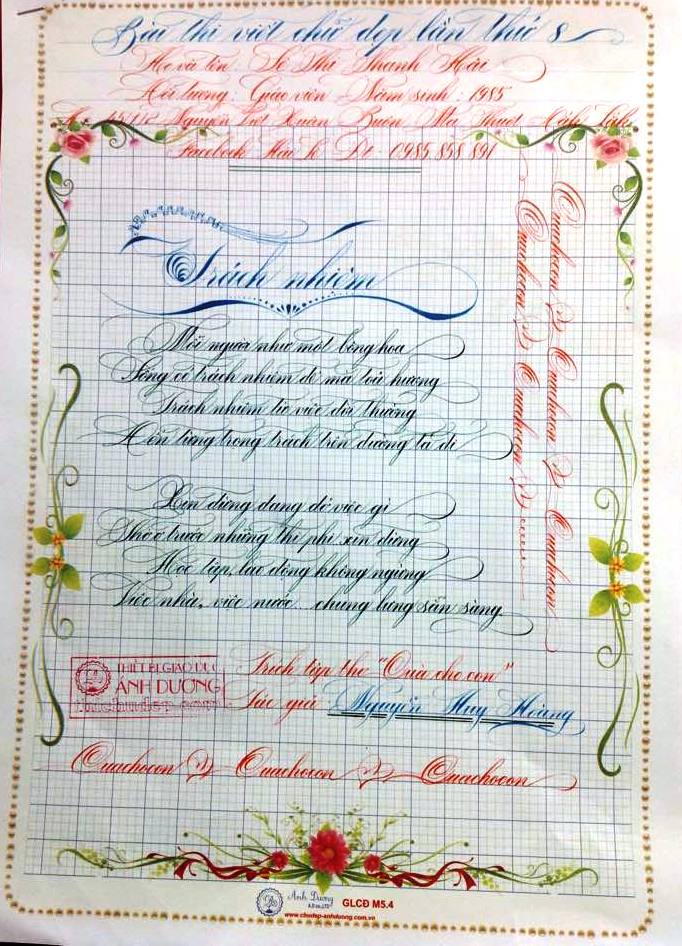 Bài thi viết chữ đẹp lần thứ 8
Họ và tên Lê Thị Thanh Hải
Đối tượng Giáo viên Năm sinh: 1985
Nguyễn Viết Xuân Buôn Ma Thuột Đắk Lăk
Facebook Hải Lê Dt: 0985 858 891
Trách nhiệm
Mỗi người như một bông hoa
Sống có trách nhiệm để mà toả hương
Trách nhiệm từ việc đời thường
Đến từng trọng trách trên đường ta đi
Xin đừng dang dở việc gì
Thờ ơ trước những thị phi xin đừng
Học tập, lao động không ngừng
Việc nhà, việc nước... chung lưng sẵn sàng
Trích tập thơ "Quà cho con"
Tác giả Nguyễn Huy Hoàng
Quachocon Quachocon Quachocon
Quachocon Quachocon Quachocon
Quachocon Quachocon
THIẾT BỊ GIÁO DỤC
ÁNH DƯƠNG
Ánh Dương
GLCĐ M5.4
www.chudep-anhduong.com.vn